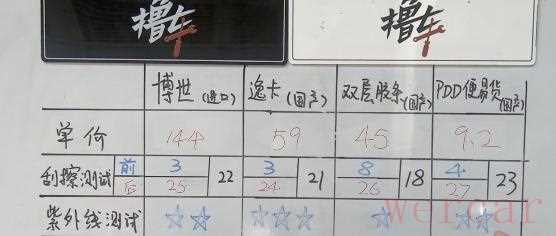 撸车 撸车
博世(进口) 逸卡(国产) 双层胶条(国产) PDD便易货(国产)
单价 144 59 45 9.2
刮擦测试 前 3 22 3 21 8 18 4 23
后 25 24 26 27
紫外线测试 ☆☆ ☆☆☆ ☆ ☆☆
wercar